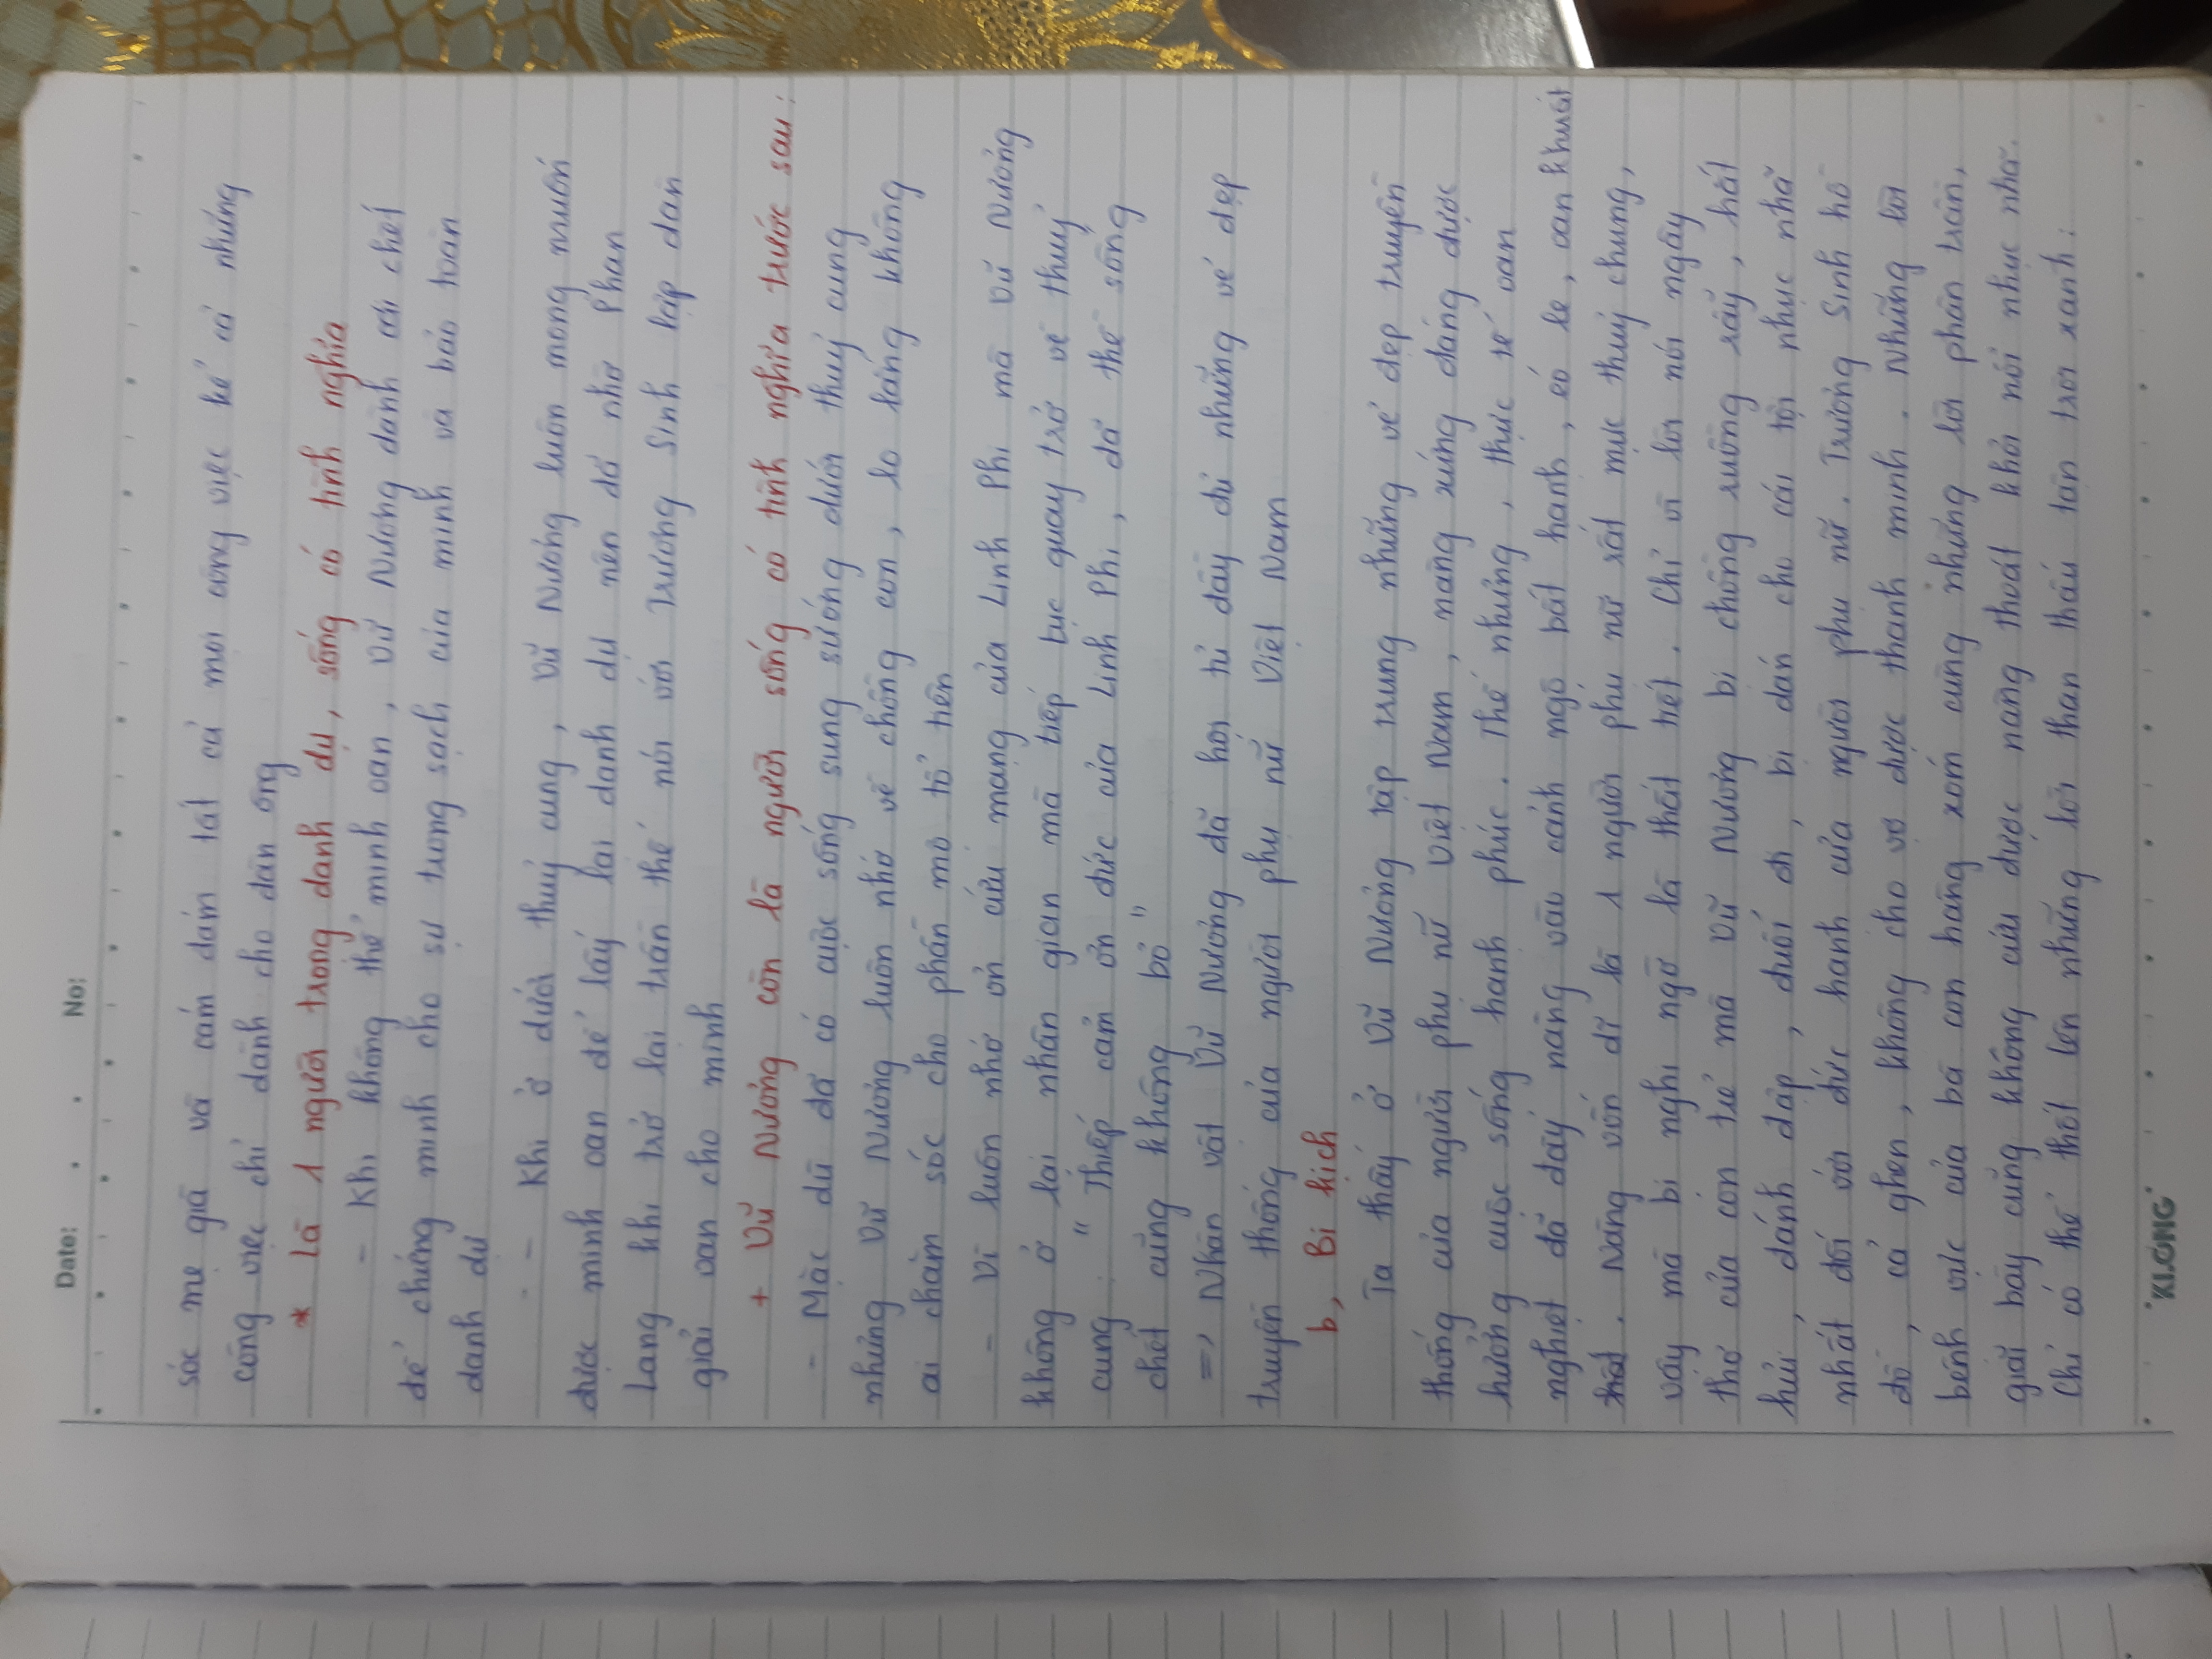 Date: . . No:
sóc mẹ già và cám đám tất cả mọi công việc kể cả những
công việc chỉ dành cho đàn ông
* là 1 người trọng danh dự, sống có tình nghĩa
- Khi không thể minh oan, Vũ Nương dành cái chết
để chứng minh cho sự trong sạch của mình và bảo toàn
danh dự
- - Khi ở dưới thuỷ cung, Vũ Nương luôn mong muốn
được minh oan để lấy lại danh dự nên đã nhờ Phan
Lang khi trở lại trần thế nói với Trương Sinh lập đàn
giải oan cho mình
+ Vũ Nương còn là người sống có tình nghĩa trước sau:
- Mặc dù đã có cuộc sống sung sướng dưới thuỷ cung
nhưng Vũ Nương luôn nhớ về chồng con, lo lắng không
ai chăm sóc cho phần mộ tổ tiên
- Vì luôn nhớ ơn cứu mạng của Linh Phi mà Vũ Nương
không ở lại nhân gian mà tiếp tục quay trở về thuỷ
cung: "Thiếp cảm ơn đức của Linh Phi, đã thề sống
chết cũng không bỏ"
=> Nhân vật Vũ Nương đã hội tủ đầy đủ những vẻ đẹp
truyền thống của người phụ nữ Việt Nam
b, Bi kịch
Ta thấy ở Vũ Nương tập trung những vẻ đẹp truyền
thống của người phụ nữ Việt Nam, nàng xứng đáng được
hưởng cuộc sống hạnh phúc. Thế nhưng, thực tế oan
nghiệt đã đẩy nàng vào cảnh ngộ bất hạnh, éo le, oan khuất
. Nàng vốn dĩ là 1 người phụ nữ rất mực thuỷ chung,
vậy mà bị nghi ngờ là thất tiết. Chỉ vì lời nói ngây
thơ của con trẻ mà Vũ Nương bị chồng ruồng rẫy, hắt
hủi, đánh đập, đuổi đi, bị dán cho cái tội nhục nhã
nhất đối với đức hạnh của người phụ nữ. Trương Sinh hồ
đồ, cả ghen, không cho vợ được thanh minh. Những lời
bênh vực của bà con hàng xóm cùng những lời phân trần,
giãi bày cũng không cứu được nàng thoát khỏi nỗi nhục nhã.
Chỉ có thể thốt lên những lời than thấu tận trời xanh:
KLONG